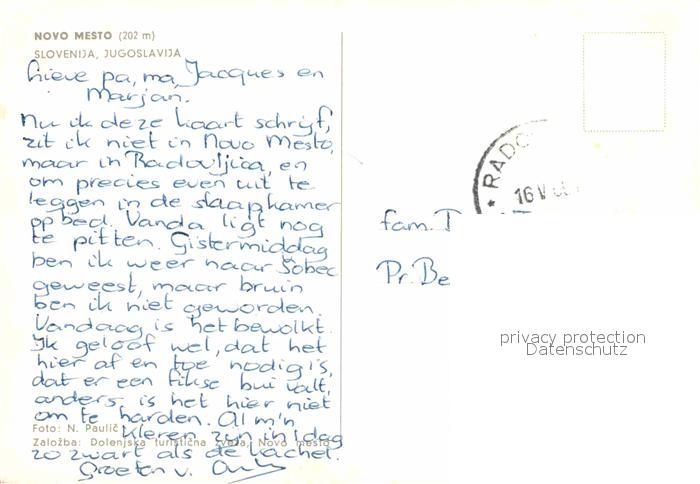 NOVO MESTO (202 m)
SLOVENIJA, JUGOSLAVIJA
Lieve pa, ma, Jacques en
Marjan.
Nu ik deze kaart schrijf,
zit ik niet in Novo Mesto,
maar in Radovljica, en
om precies even uit te
leggen in de slaapkamer
op bed. Vanda ligt nog
te pitten. Gistermiddag
ben ik weer naar Sobec
geweest, maar bruin
ben ik niet geworden.
Vandaag is het bewolkt.
Ik geloof wel, dat het
hier af en toe nodig is,
dat er een fikse bui valt,
anders is het hier niet
om te harden. Al m'n
Foto: N. Paulič
kleren zijn in 1 dag
Založba: Dolenjska turistična zveza, Novo mesto
zo zwart als de kachel.
Groeten v.
RADO
16 V
fam. T
Pr. Be
privacy protection
Datenschutz